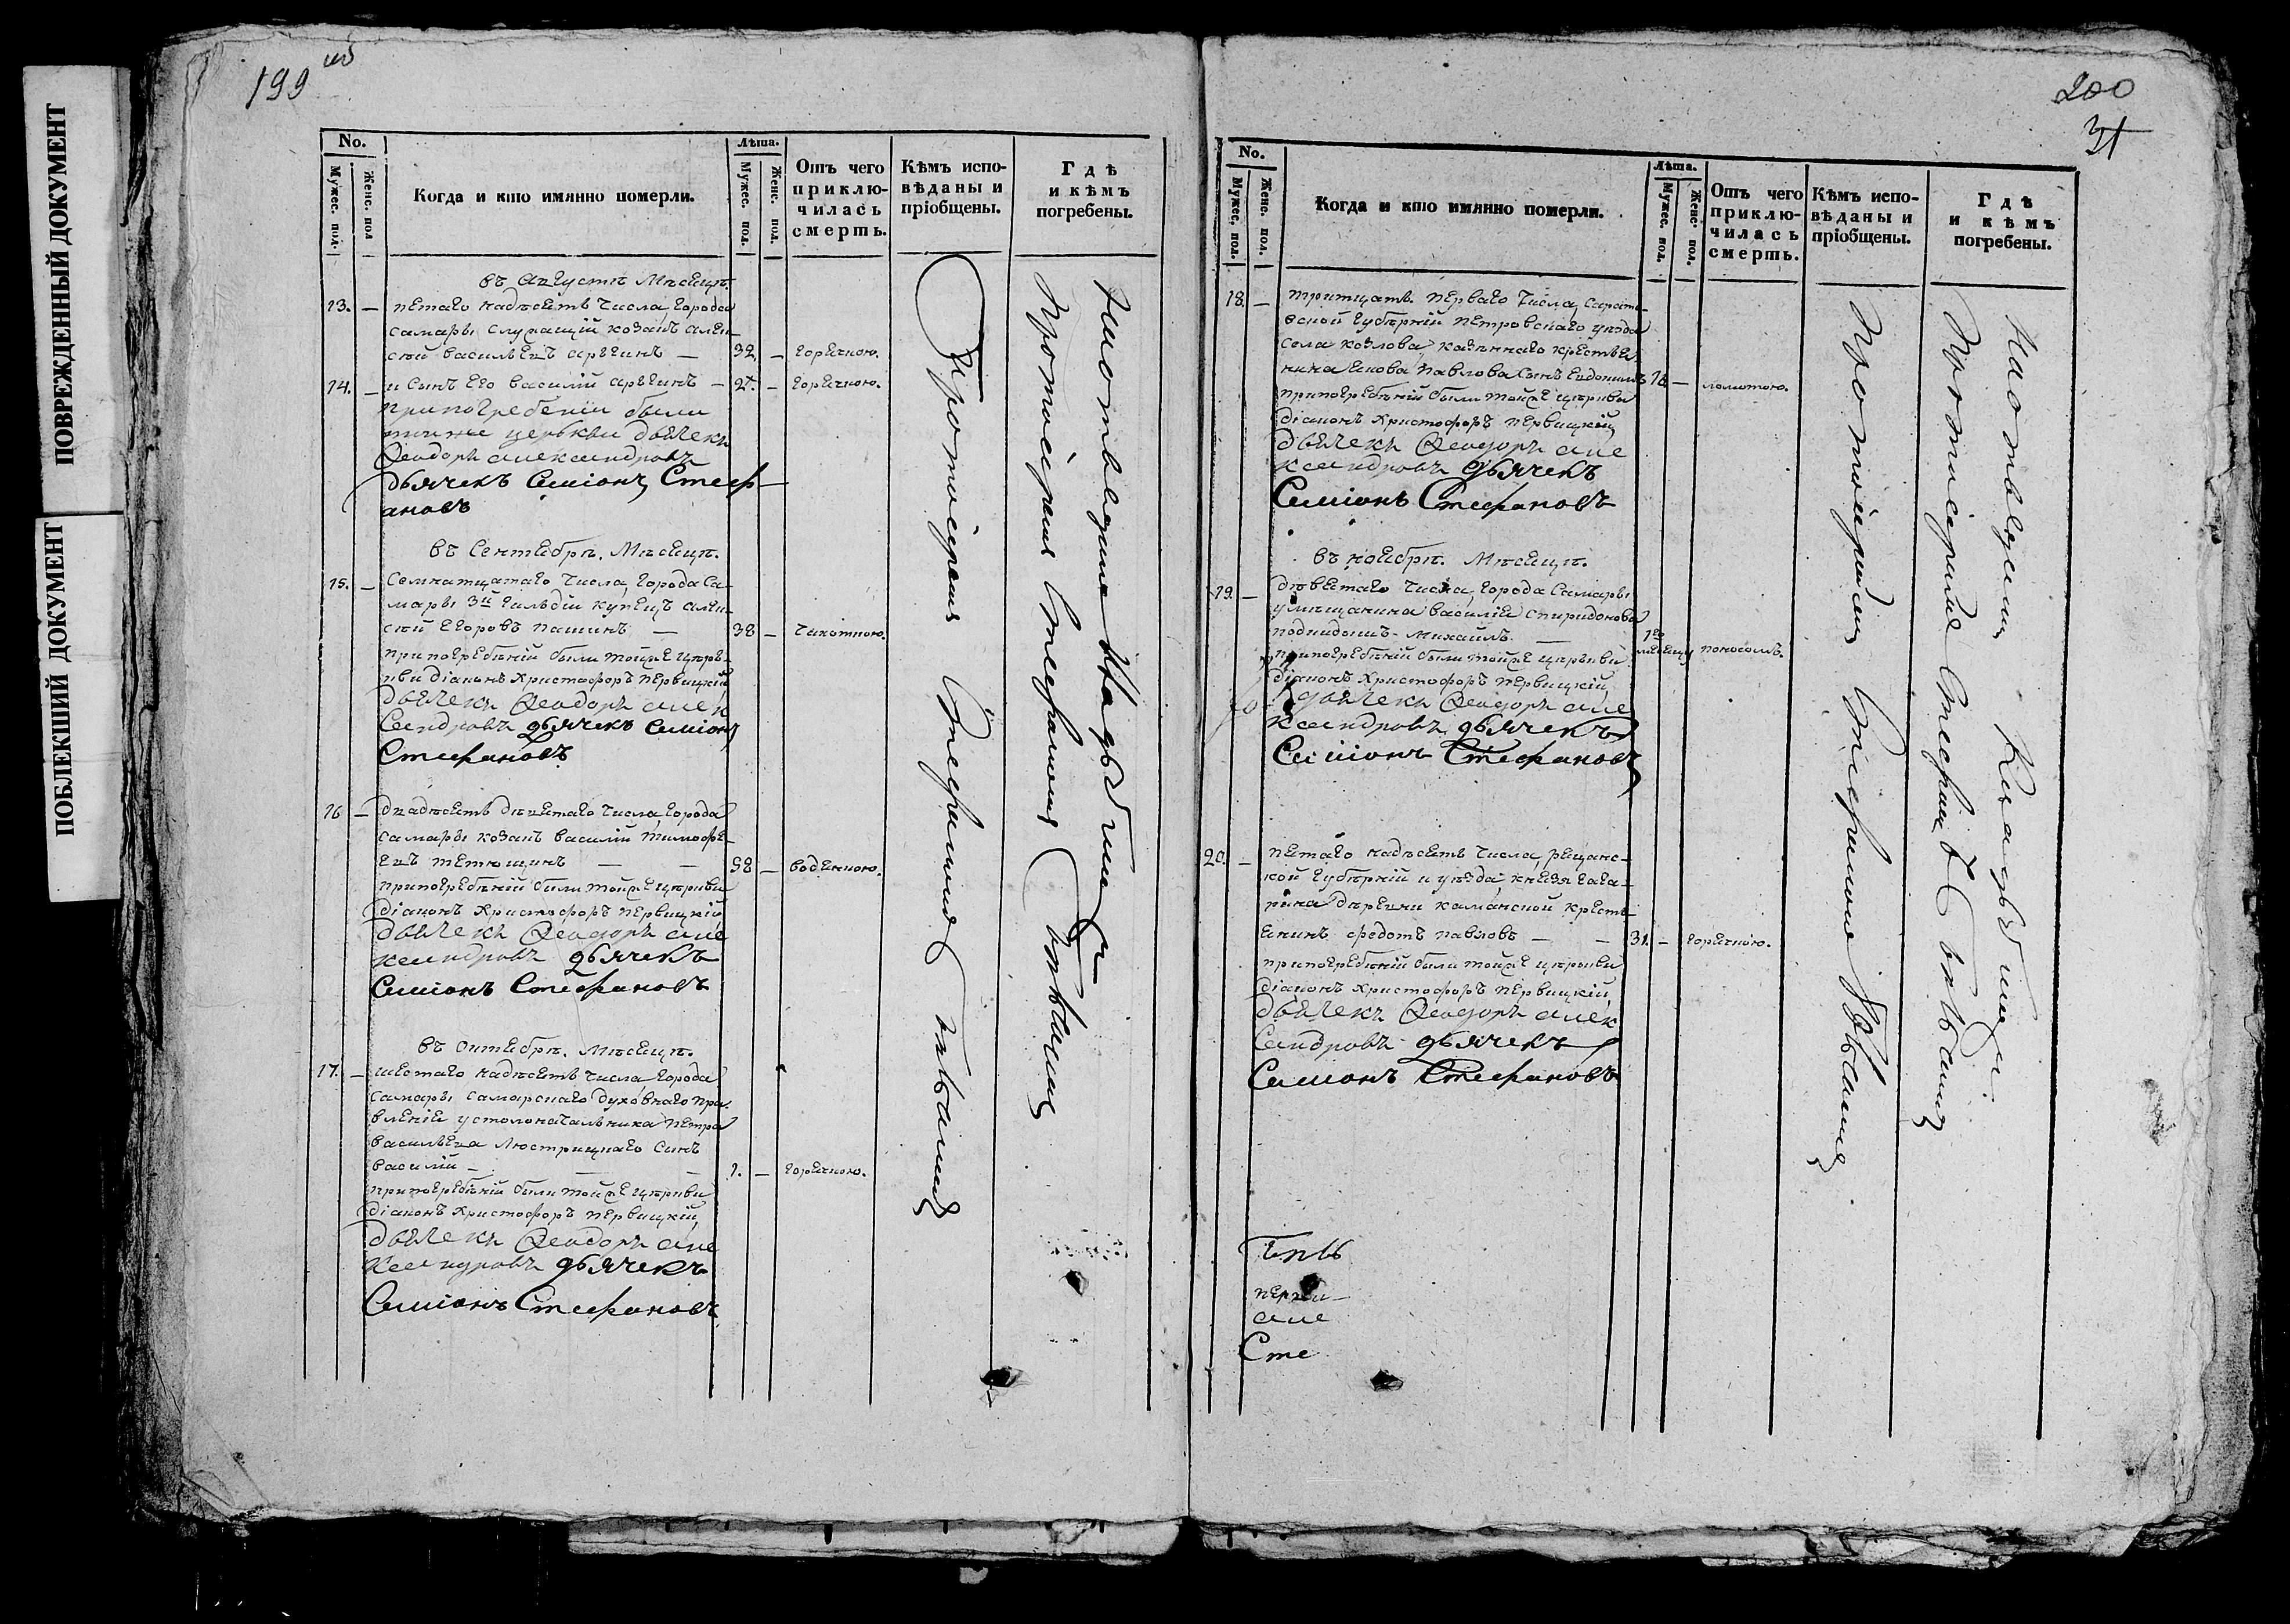 ПОВРЕЖДЕННЫЙ ДОКУМЕНТ
ПОБЛЕКШИЙ ДОКУМЕНТ
199 об
No.
Мужес. пол.
Женс. пол
Когда и кто имянно померли.
Лѣта.
Мужес. пол.
Женс. пол.
Отъ чего
приклю-
чилась
смерть.
Кѣмъ испо-
вѣданы и
пріобщены.
Гдѣ
и кѣмъ
погребены.
въ Августѣ Мѣсецѣ.
13. — петаго надесеть числа, города
самары служащій козакъ алек-
сѣй васильевъ аржекинъ — 32. — горечкою.
14. — и сынъ его василій — 2 — горечкою.
при погребеніи были
тоиже церькви дьячекъ
Феодоръ александровъ
дьячекъ Симіонъ Стеф-
ановъ
въ Сентебрѣ. Мѣсецѣ.
15. — Семнатцатаго числа, города Са-
мары 3й гильдіи купецъ алек-
сѣй егоровъ пашинъ — 38 — чахоткою.
при погребеніи были тойже церк-
кви діаконъ Христофоръ первицкій,
дьячекъ Феодоръ алек
сандровъ дьячекъ Симіонъ
Стефановъ
16 — двадесеть деветаго числа, города
самары козакъ василій тимофе-
евъ тетюшинъ — — 58 — водяною.
при погребеніи были тойже церкви
діаконъ Христофоръ первицкій,
дьячекъ Феодоръ але
ксандровъ дьячекъ
Симіонъ Стефановъ
въ Октебрѣ. Мѣсецѣ.
17. — шестаго надесеть числа, города
самары самарскаго духовнаго пра-
вленія у столоначальника петра
васильева Люстрицкаго сынъ
василій — — — 1. — горечкою.
при погребеніи были тойже церкви
діаконъ Христофоръ первицкій,
дьячекъ Феодоръ але
ксандровъ дьячекъ
Симіонъ Стефановъ
Протоіереемъ Стефаномъ
Протоіереемъ Стефаномъ
На отведенномъ Кладбище
200
31
No.
Мужес. пол.
Женс. пол.
Когда и кто имянно померли.
Лѣта.
Мужес. пол.
Женс. пол.
Отъ чего
приклю-
чилась
смерть.
Кѣмъ испо-
вѣданы и
пріобщены.
Гдѣ
и кѣмъ
погребены.
18. — тритцать перваго числа, сарато-
вской губерніи петровскаго уезда
села козлова казеннаго крестье-
нина павлова сынъ евдокимъ 18 — ломотою.
при погребеніи были тойже церкви
діаконъ Христофоръ первицкій,
дьячекъ Феодоръ але
ксандровъ дьячекъ
Симіонъ Стефановъ
въ ноебрѣ. Мѣсецѣ.
19. — деветаго числа, города Самары
у мещанина василія спиридонова
подкидышъ Михаилъ — 1го месецу поносомъ.
при погребеніи были тойже церкви
діаконъ Христофоръ первицкій,
дьячекъ Феодоръ але
ксандровъ дьячекъ
Симіонъ Стефановъ
20. — петаго надесеть числа, резанс-
кой губерніи и уезда, князя гага-
рина деревни каманской кресть-
енинъ федотъ павловъ — — 31. — горечкою.
при погребеніи были тойже церкви
діаконъ Христофоръ первицкій,
дьячекъ Феодоръ алек
сандровъ дьячекъ
Симіонъ Стефановъ
але
Сте
Протоіереемъ Стефаномъ
Протоіереемъ Стефаномъ
На отведенномъ Кладбище